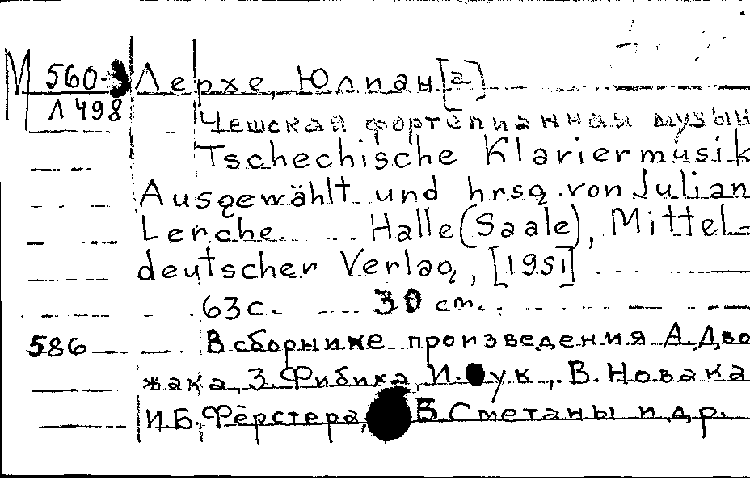 М 560-3 Лерхе, Юлиан[а]
Л 498
Чешская фортепианная музык
Tschechische Klaviermusik
Ausgewählt und hrsg. von Julian
Lerche Halle (Saale), Mittel-
deutscher Verlag, [1951]
63 с. 30 см.
586 В сборнике произведения А. Дво
жака, З. Фибиха, И. ук, В. Новака
И.Б. Фёрстера, Б. Сметаны и др.